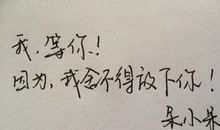 我，等你！
因为，我舍不得放下你！
呆小呆